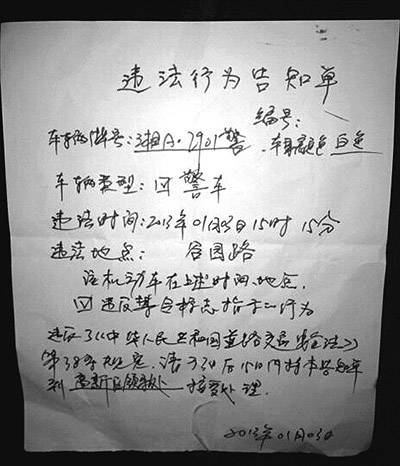 违法行为告知单
编号:
车辆牌号:湘A·2901警 车身颜色 白色
车辆类型:☑警车
违法时间:2013年01月03日15时15分
违法地点: 谷园路
该机动车在上述时间、地点,
☑违反禁令标志指示行为
违反了《中华人民共和国道路交通安全法》
第38条规定,请于3日后15日内持本告知单
到 高新区领 接受处理.
2013年01月03日